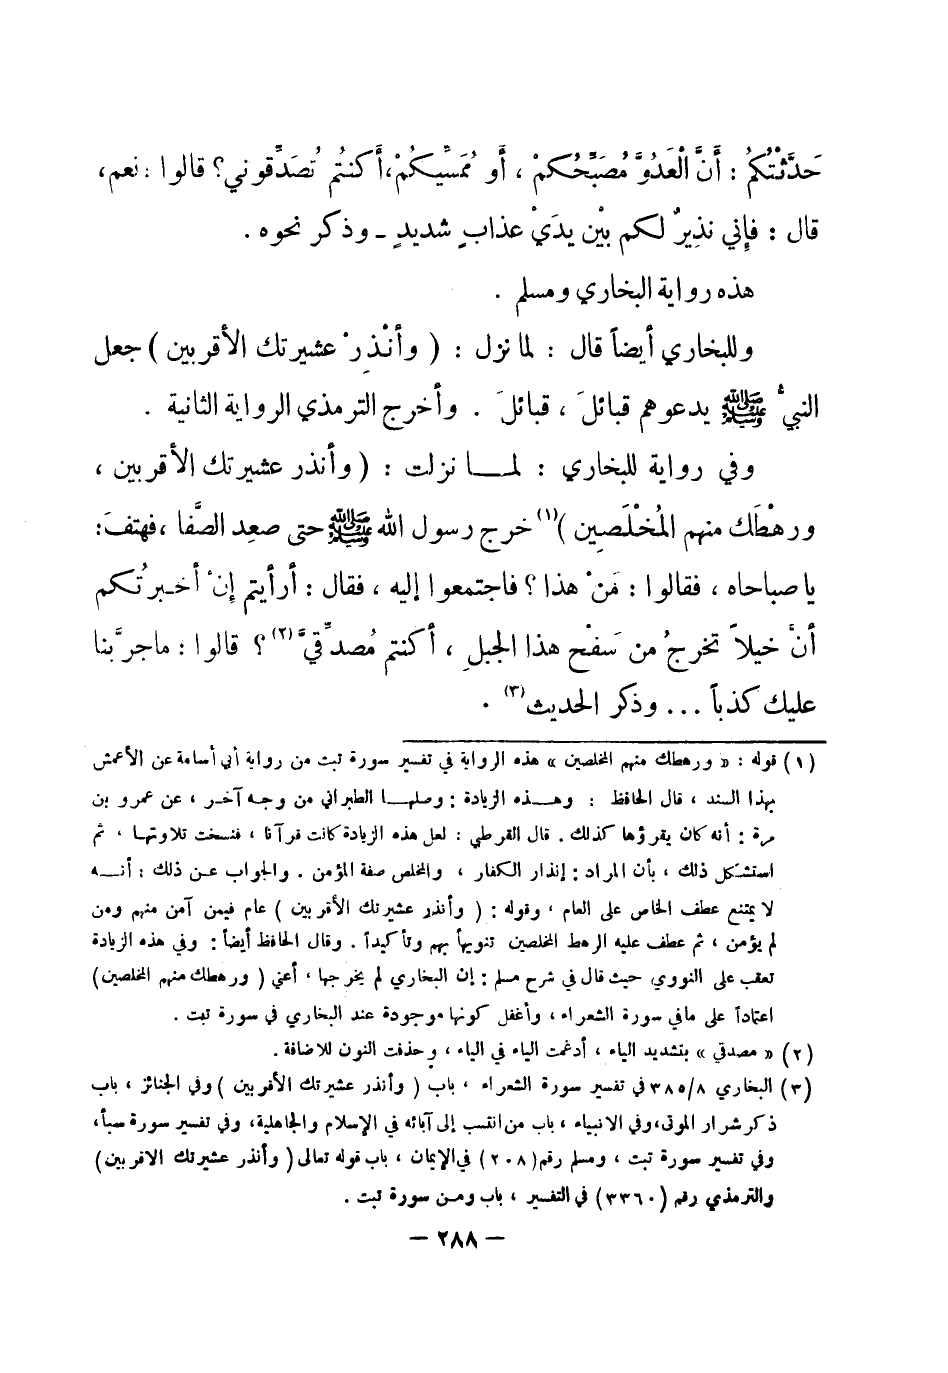 حَدَّثْتُكُمْ : أَنَّ الْعَدُوَّ مُصَبِّحُكمْ ، أَو مُمَسِّيكُمْ،أَكنتُم تُصَدِّقوني؟ قالوا : نعم،
قال : فإِني نذِيرٌ لكم بيْن يدَيْ عذابٍ شديدٍ ـ وذكر نحوه .
هذه رواية البخاري ومسلم .
وللبخاري أيضاً قال : لما نزل : ( وأنْذِرْ عشيرتك الأقربين ) جعل
النبيُّ ﷺ يدعوهم قبائلَ ، قبائلَ . وأخرج الترمذي الرواية الثانية .
وفي رواية للبخاري : لمــا نزلت : ( وأنذر عشيرتك الأقربين ،
ورهْطَك منهم المُخْلَصِين )(١) خرج رسول الله ﷺ حتى صعِد الصَّفا ،فهتفَ:
يا صباحاه ، فقالوا : مَنْ هذا ؟ فاجتمعوا إليه ، فقال : أرأيتم إنْ أخبرتُكم
أنَّ خيلاً تخرجُ من سَفْح هذا الجبلِ ، أكنتم مُصدِّقيَّ(٢) ؟ قالوا : ماجرَّبنا
عليك كذباً ... وذكر الحديث(٣) .
(١) قوله : « ورهطك منهم المخلصين » هذه الرواية في تفسير سورة تبت من رواية أبي أسامة عن الأعمش
بهذا السند ، قال الحافظ : وهــذه الزيادة : وصلهــا الطبراني من وجه آخر ، عن عمرو بن
مرة : أنه كان يقرؤها كذلك . قال القرطي : لعل هذه الزيادة كانت قرآنا ، فنسخت تلاوتها ، ثم
استشكل ذلك ، بأن المراد : إنذار الكفار ، والمخلص صفة المؤمن . والجواب عن ذلك : أنــه
لا يمتنع عطف الخاص على العام ، وقوله : ( وأنذر عشيرتك الأقربين ) عام فيمن آمن منهم ومن
لم يؤمن ، ثم عطف عليه الرهط المخلصين تنويهاً بهم وتأكيداً . وقال الحافظ أيضاً : وفي هذه الزيادة
تعقب على النووي حيث قال في شرح مسلم : إن البخاري لم يخرجها ، أعني ( ورهطك منهم المخلصين)
اعتماداً على مافي سورة الشعراء ، وأغفل كونها موجودة عند البخاري في سورة تبت .
(٢) « مصدقي » بتشديد الياء ، أدغمت الياء في الياء ، وحذفت النون للاضافة .
(٣) البخاري ٣٨٥/٨ في تفسير سورة الشعراء ، باب ( وأنذر عشيرتك الأقربين ) وفي الجنائز ، باب
ذكر شرار الموتى،وفي الانبياء ، باب من انتسب إلى آبائه في الإسلام والجاهلية، وفي تفسير سورة سبأ،
وفي تفسير سورة تبت ، ومسلم رقم (٢٠٨) في الإيمان ، باب قوله تعالى ( وأنذر عشيرتك الاقربين)
والترمذي رقم (٣٣٦٠) في التفسير ، باب ومن سورة تبت .
— ٢٨٨ —